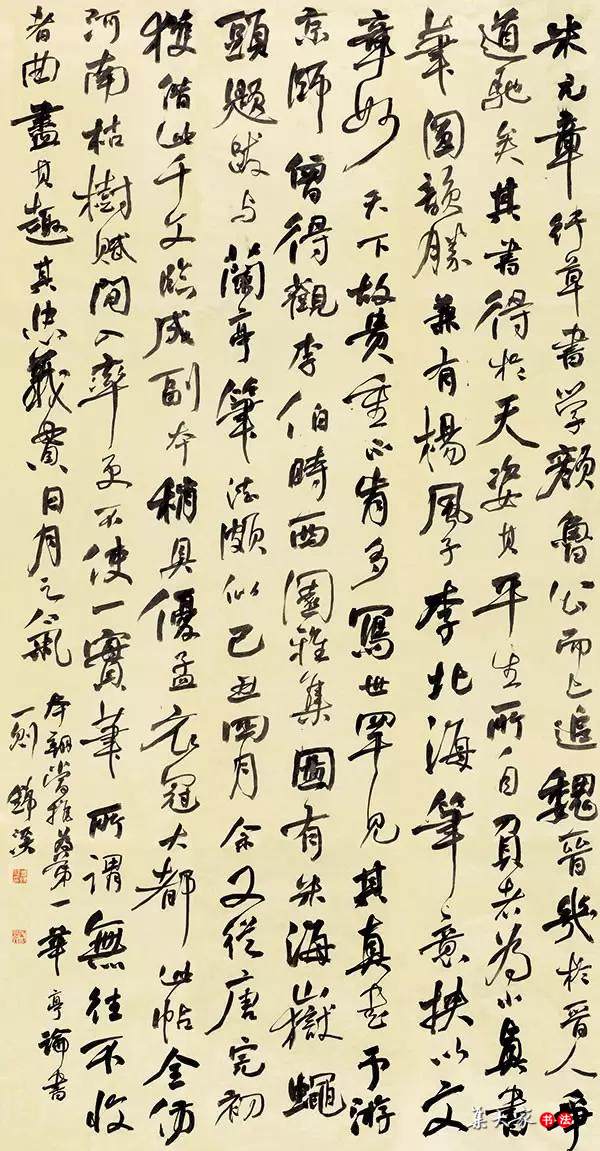 米元章行草書学顏魯公而上追魏晉幾於晋人爭
道馳矣其書得於天姿其平生所自負者為小真書
筆圓韻勝兼有楊風子李北海筆意挾以文
章妙天下故貴重不肯多寫世罕見其真書予游
京師曾得觀李伯時西園雅集圖有米海嶽蠅
頭題跋与蘭亭筆法頗似己丑四月余又從唐完初
獲借此千文臨成副本稍具優孟衣冠大都此帖全仿
河南枯樹賦間入率更不使一實筆所謂無往不收
者曲盡其趣其忠義貫日月之氣
本朝當推第一華亭論書
一則錦溪
集大家书法